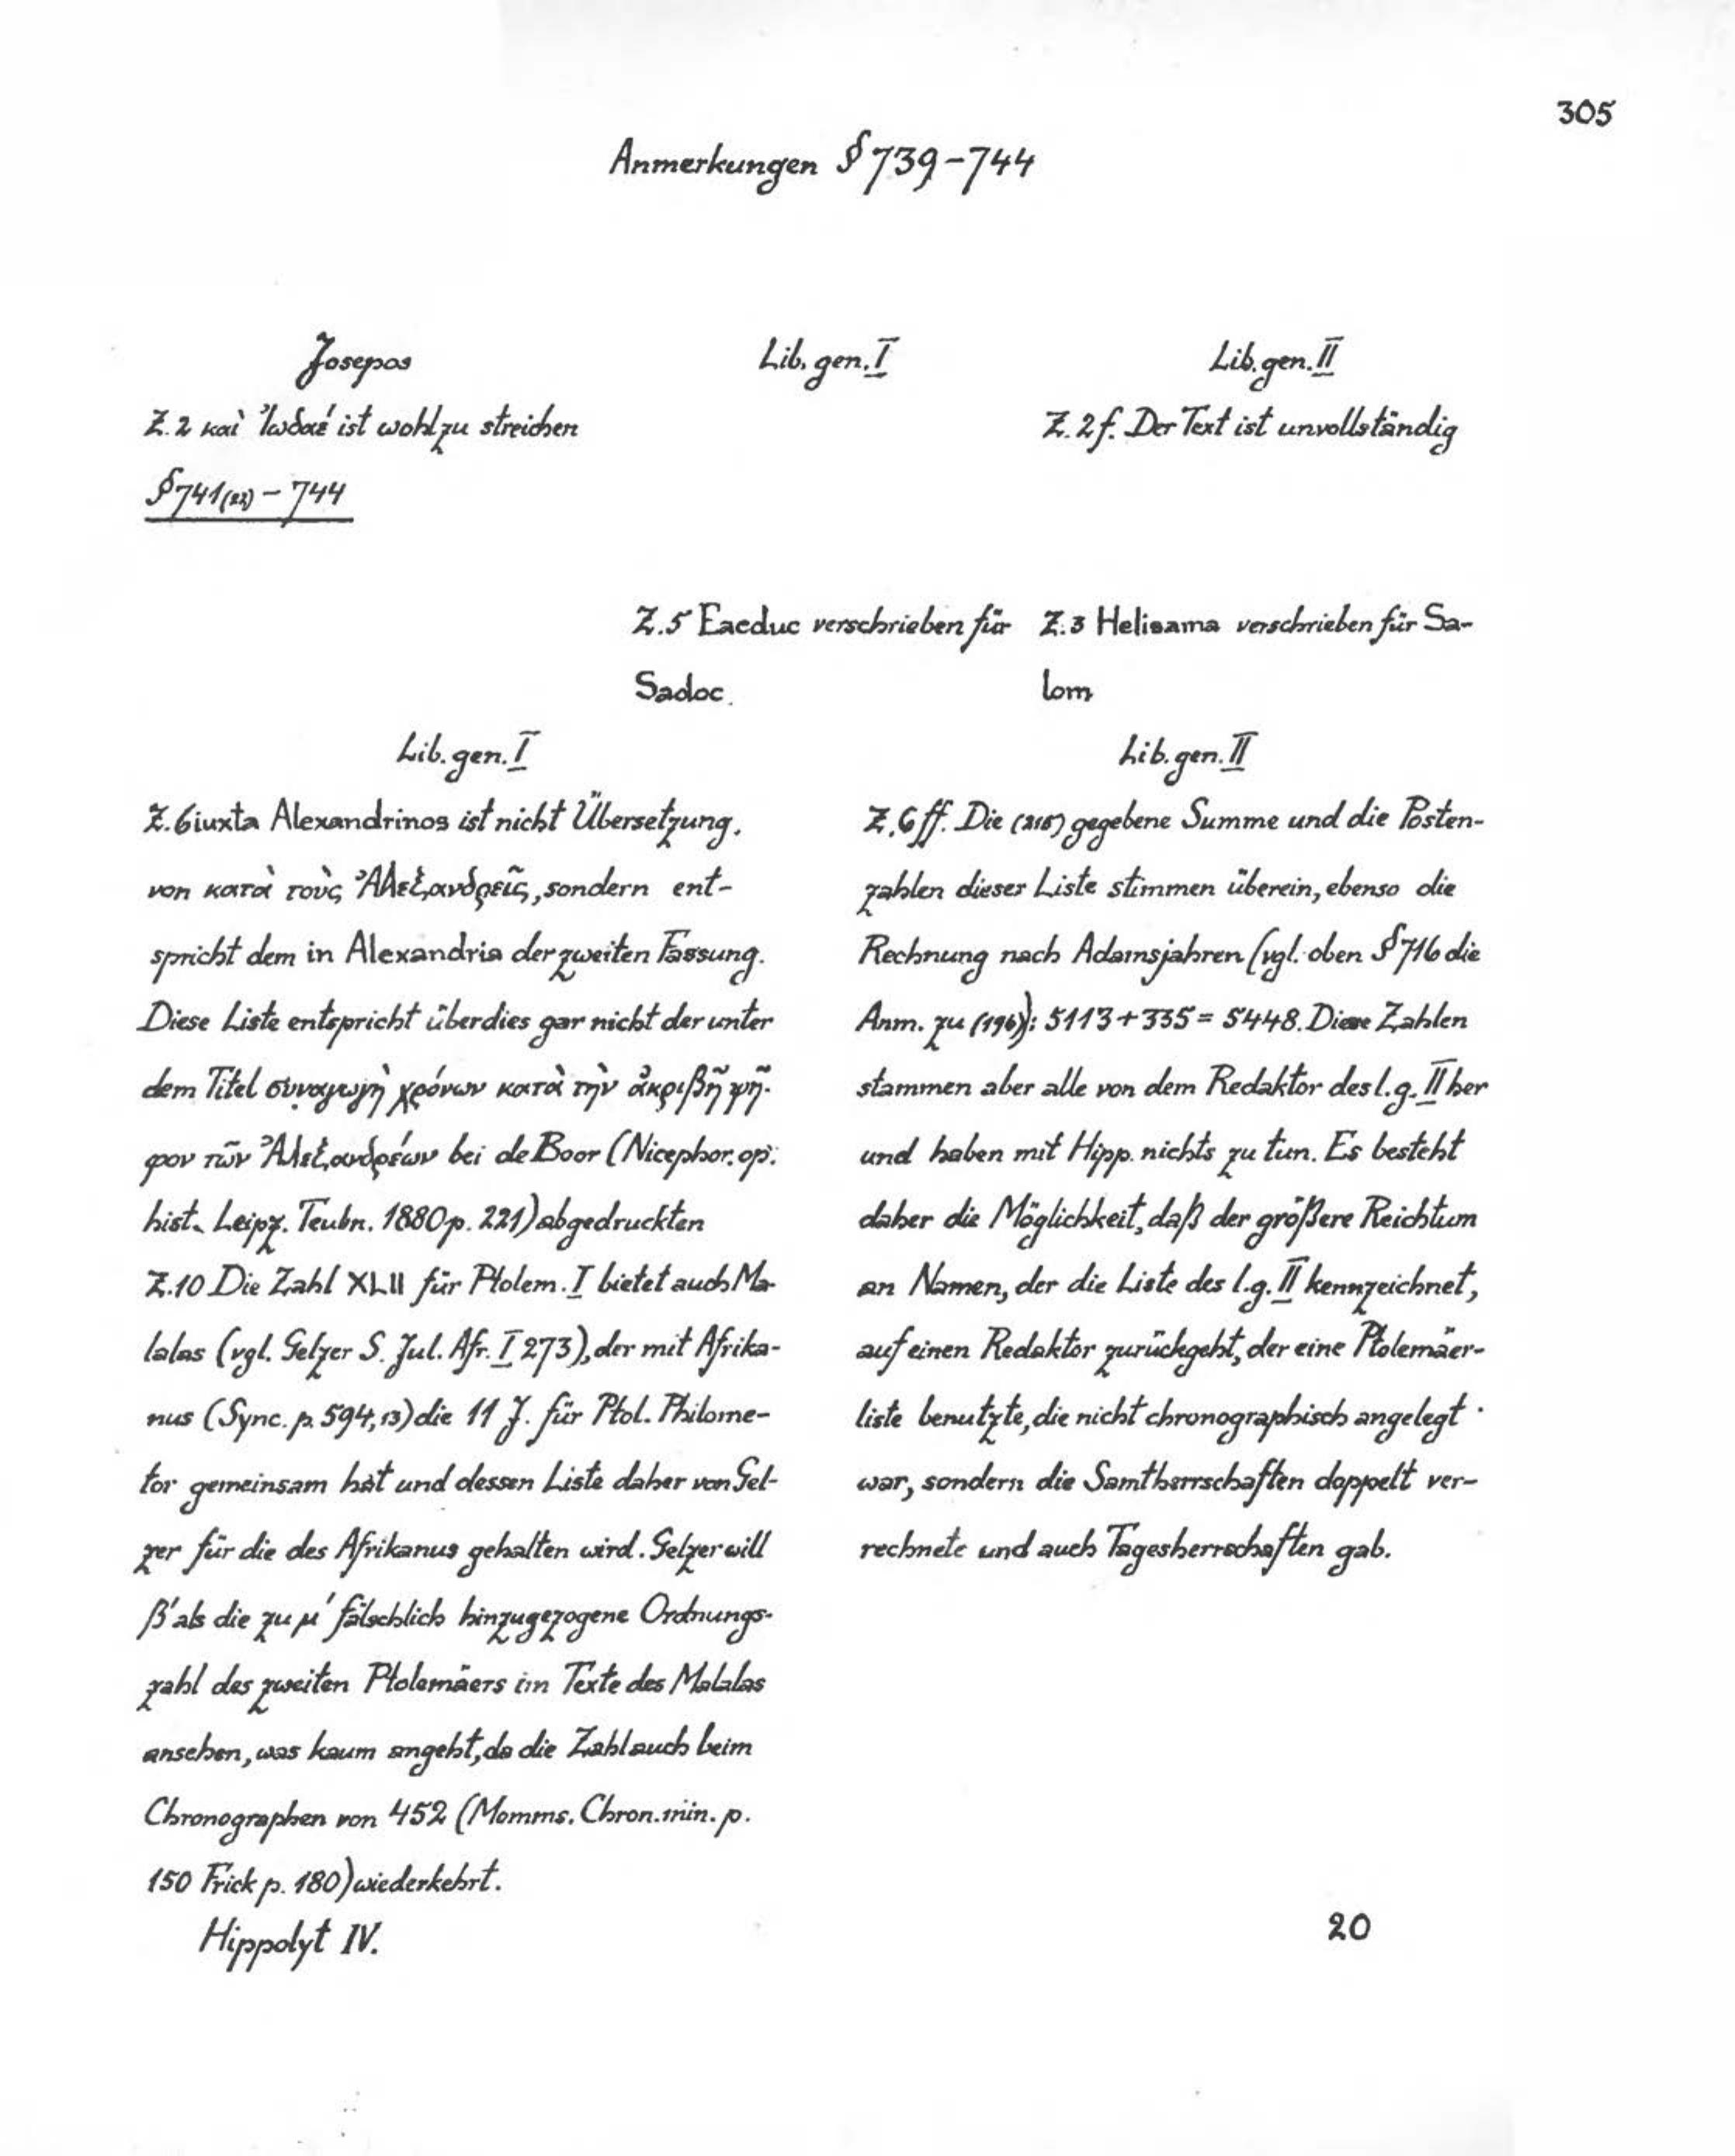 305
Anmerkungen § 739-744
Josepos
Z. 2 καὶ Ἰωδαέ ist wohl zu streichen
§ 741(22) - 744
Lib. gen. I
Lib. gen. II
Z. 2 f. Der Text ist unvollständig
Z. 5 Eaeduc verschrieben für
Sadoc.
Z. 3 Helisama verschrieben für Sa-
lom
Lib. gen. I
Z. 6 iuxta Alexandrinos ist nicht Übersetzung,
von κατὰ τοὺς Ἀλεξανδρεῖς, sondern ent-
spricht dem in Alexandria der zweiten Fassung.
Diese Liste entspricht überdies gar nicht der unter
dem Titel συναγωγὴ χρόνων κατὰ τὴν ἀκριβῆ ψῆ-
φον τῶν Ἀλεξανδρέων bei de Boor (Nicephor. op.
hist. Leipz. Teubn. 1880 p. 221) abgedruckten
Z. 10 Die Zahl XLII für Ptolem. I bietet auch Ma-
lalas (vgl. Gelzer S. Jul. Afr. I 273), der mit Afrika-
nus (Sync. p. 594, 13) die 11 J. für Ptol. Philome-
tor gemeinsam hat und dessen Liste daher von Gel-
zer für die des Afrikanus gehalten wird. Gelzer will
β' als die zu μ' fälschlich hinzugezogene Ordnungs-
zahl des zweiten Ptolemäers im Texte des Malalas
ansehen, was kaum angeht, da die Zahl auch beim
Chronographen von 452 (Momms. Chron. min. p.
150 Frick p. 180) wiederkehrt.
Lib. gen. II
Z. 6 ff. Die (218) gegebene Summe und die Posten-
zahlen dieser Liste stimmen überein, ebenso die
Rechnung nach Adamsjahren (vgl. oben § 716 die
Anm. zu (196)): 5113 + 335 = 5448. Diese Zahlen
stammen aber alle von dem Redaktor des l. g. II her
und haben mit Hipp. nichts zu tun. Es besteht
daher die Möglichkeit, daß der größere Reichtum
an Namen, der die Liste des l. g. II kennzeichnet,
auf einen Redaktor zurückgeht, der eine Ptolemäer-
liste benutzte, die nicht chronographisch angelegt
war, sondern die Samtherrschaften doppelt ver-
rechnete und auch Tagesherrschaften gab.
Hippolyt IV.
20